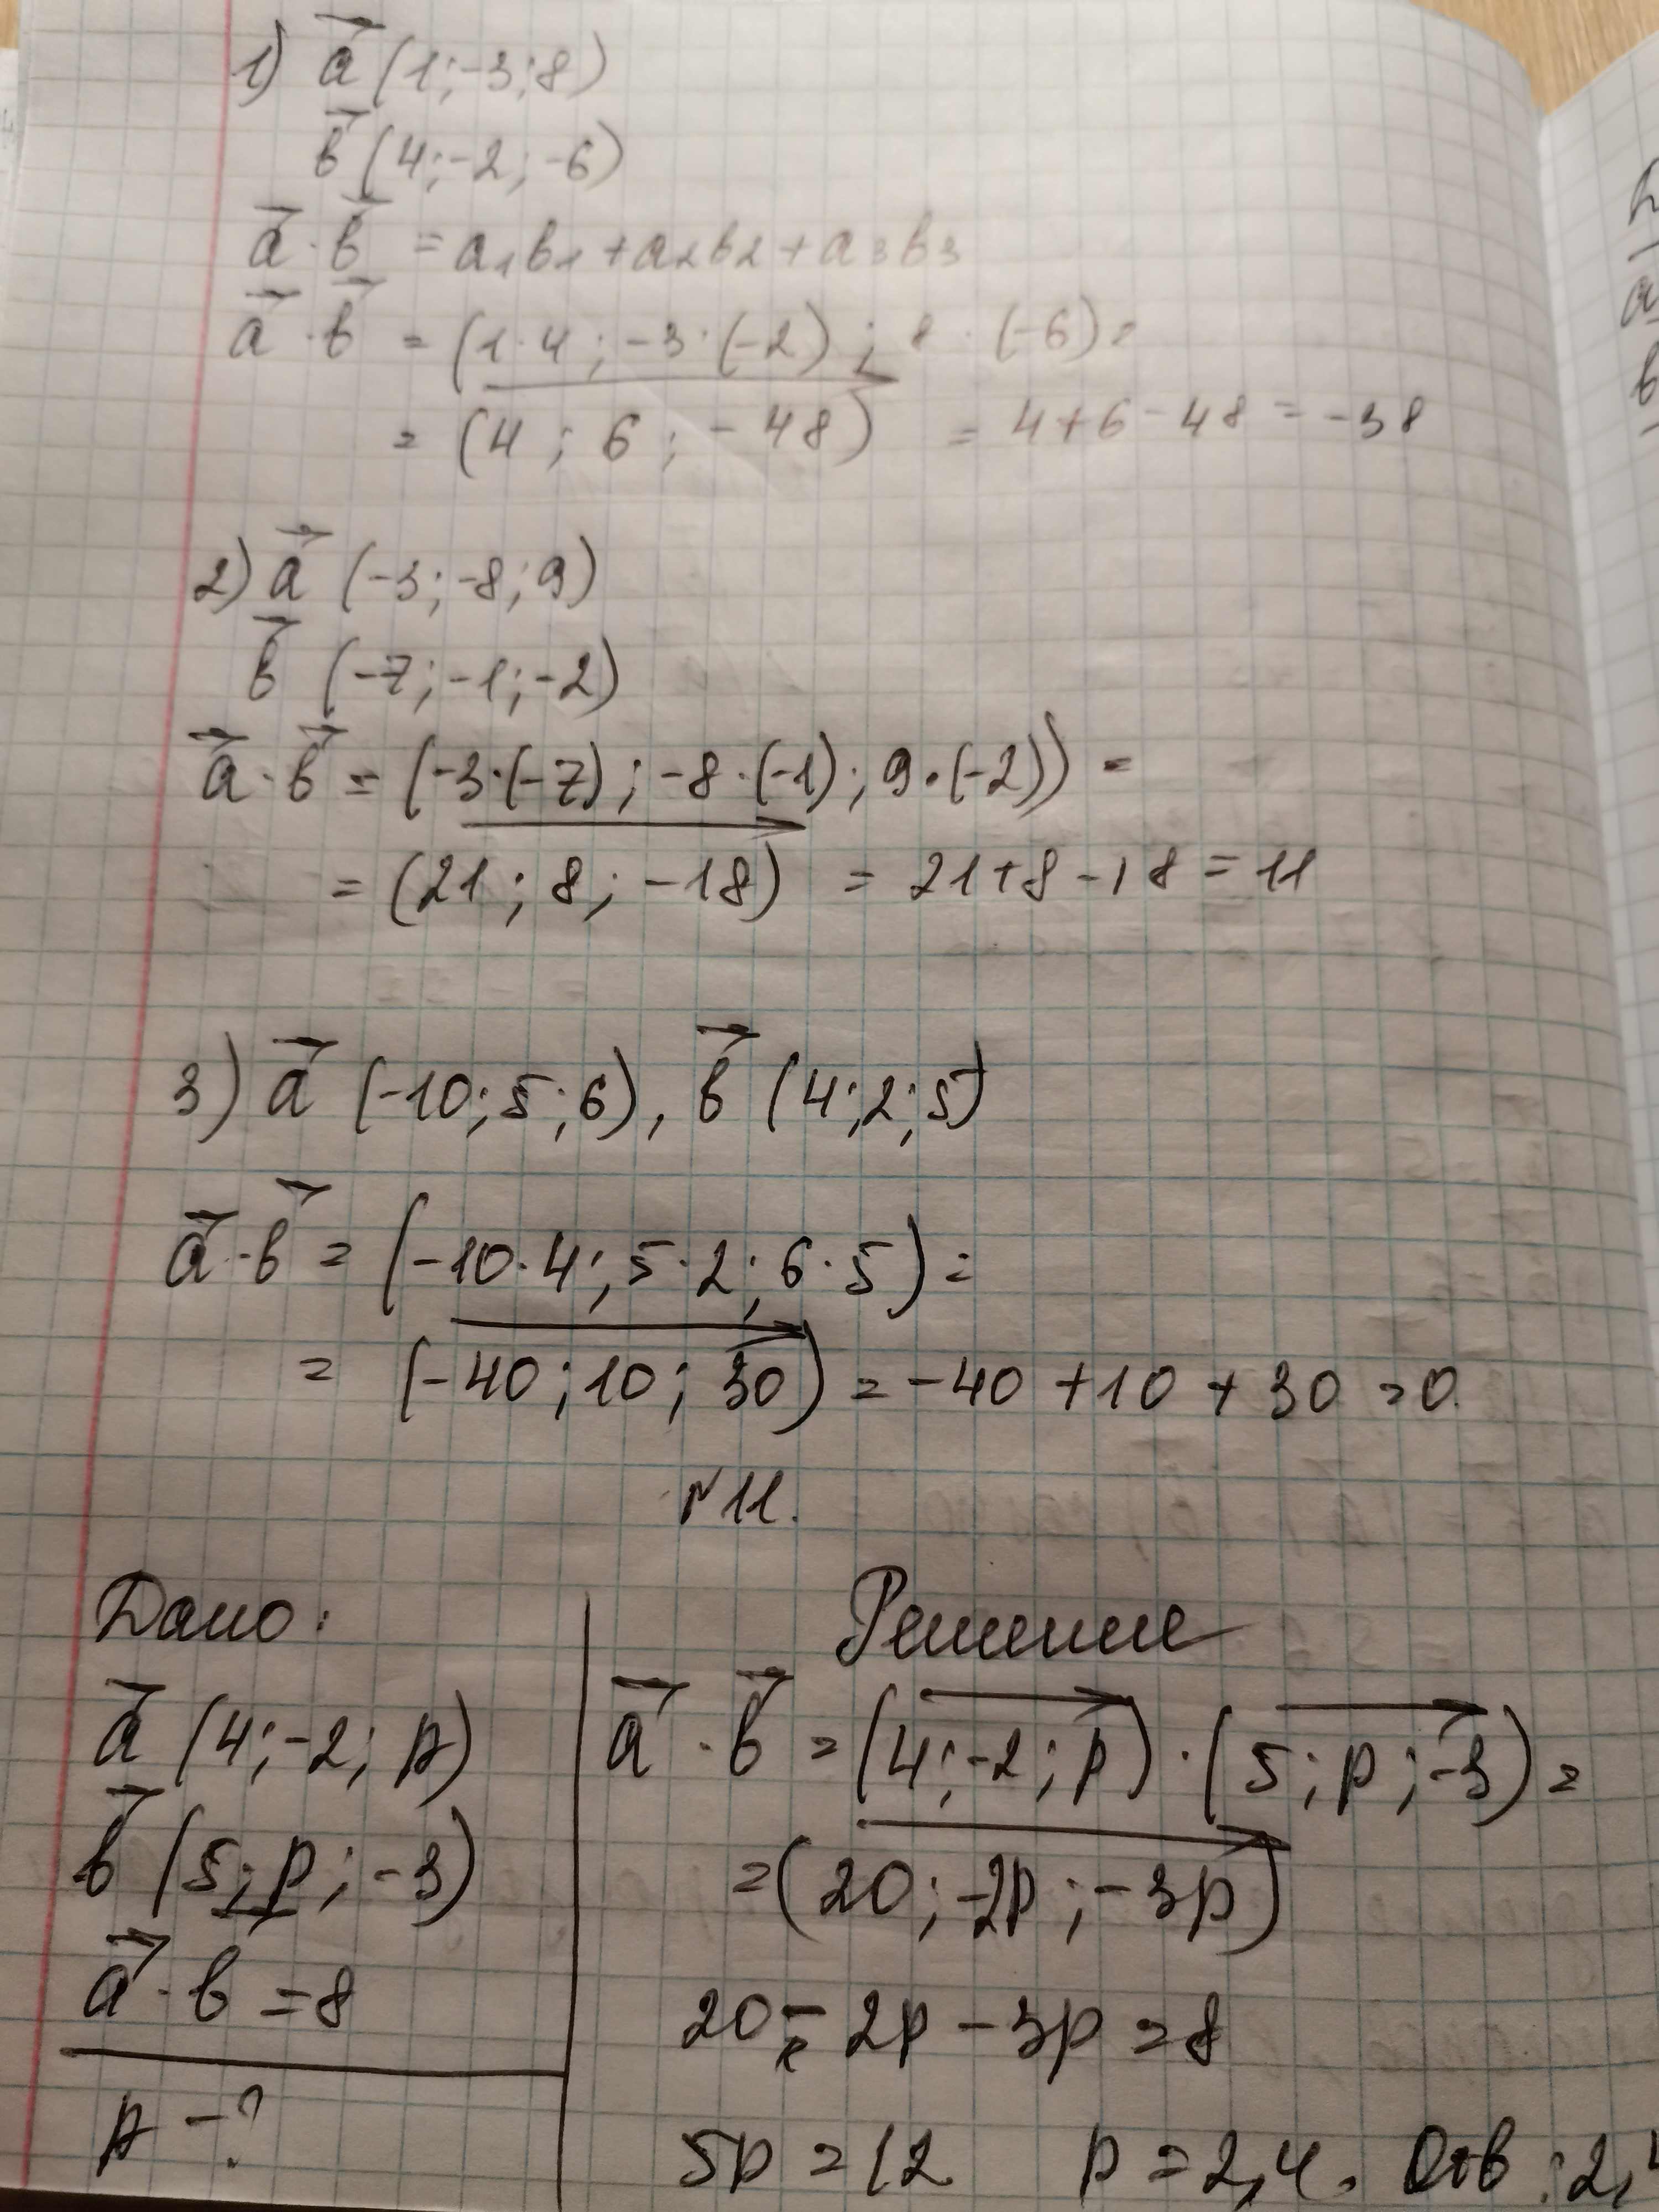 1) a⃗ (1;-3;8)
b⃗ (4;-2;-6)
a⃗ · b⃗ = a₁b₁ + a₂b₂ + a₃b₃
a⃗ · b⃗ = (1·4; -3·(-2); 8·(-6) =
= (4; 6; -48) = 4+6-48 = -38
2) a⃗ (-3;-8;9)
b⃗ (-7;-1;-2)
a⃗ · b⃗ = (-3·(-7); -8·(-1); 9·(-2)) =
= (21; 8; -18) = 21+8-18 = 11
3) a⃗ (-10;5;6), b⃗ (4;2;5)
a⃗ · b⃗ = (-10·4; 5·2; 6·5) =
= (-40; 10; 30) = -40+10+30 = 0.
№11.
Дано:
a⃗ (4;-2;p)
b⃗ (5;p;-3)
a⃗ · b = 8
p - ?
Решение
a⃗ · b⃗ = (4;-2;p) · (5;p;-3) =
= (20; -2p; -3p)
20 - 2p - 3p = 8
5p = 12 p = 2,4. Отв: 2,4